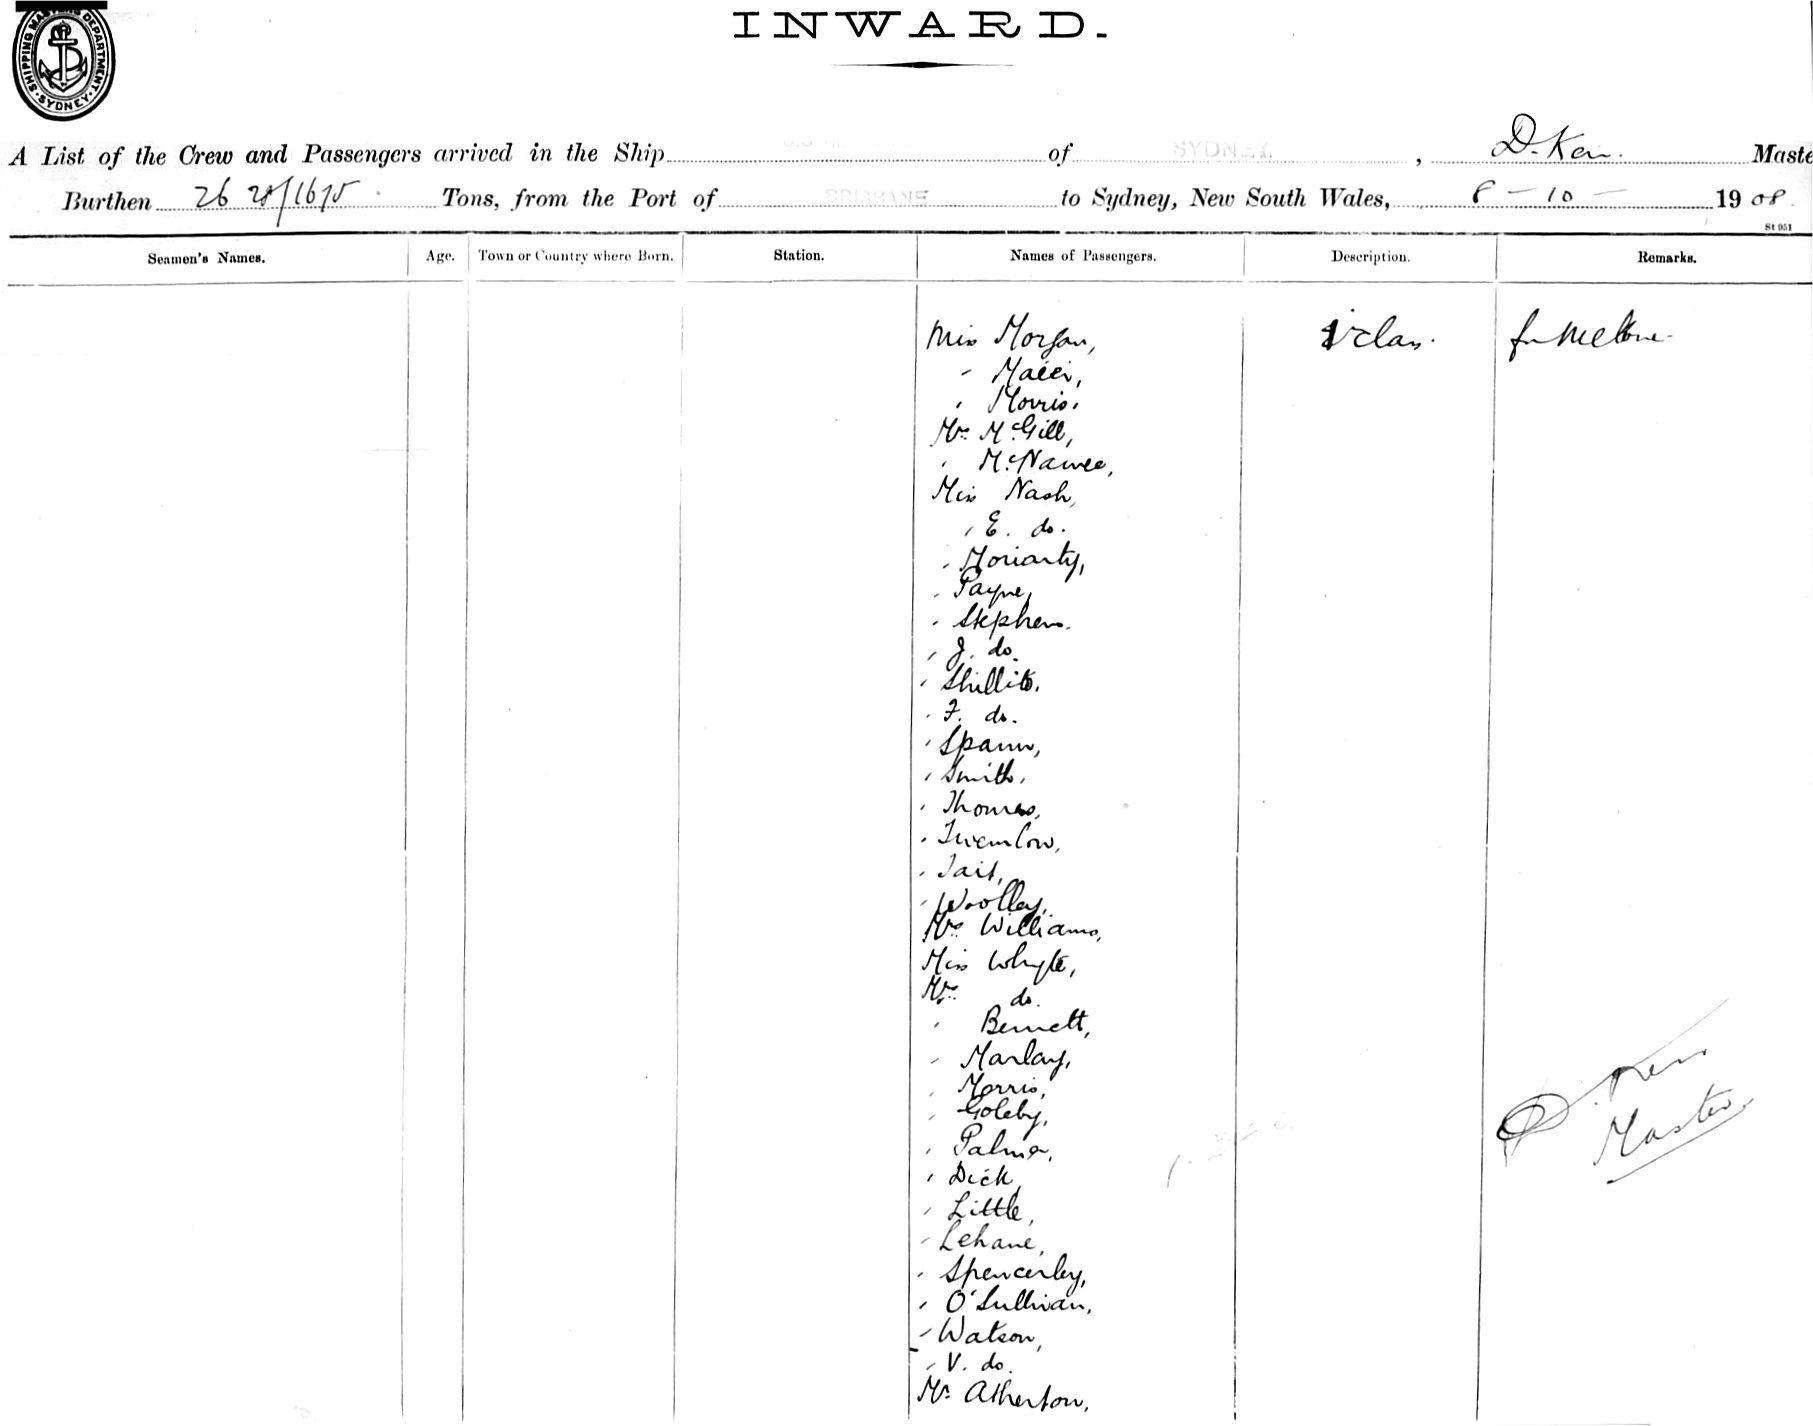 SHIPPING MASTERS DEPARTMENT
SYDNEY
INWARD.
A List of the Crew and Passengers arrived in the Ship of SYDNEY, D. Ken. Maste
Burthen 26 28/1675 Tons, from the Port of BRISBANE to Sydney, New South Wales, 8 - 10 - 1908.
St 951
Seamen's Names. Age. Town or Country where Born. Station. Names of Passengers. Description. Remarks.
Miss Morgan, 1st class.
" Maier,
" Morris.
Mrs McGill,
" McNamee,
Miss Nash,
" E. do.
" Moriarty,
" Payne,
" Stephens.
" J. do.
" Shillito.
" F. do.
" Spann,
" Smith,
" Thomas,
" Twemlow,
" Tait,
" Woolley,
Mrs Williams,
Miss Whyte,
Mrs do.
" Bennett,
" Marlay,
" Morris,
" Goleby,
" Palmer,
" Dick,
" Little,
" Lehane,
" Spencerley,
" O'Sullivan,
" Watson,
" V. do.
Mr. Atherton,
D. Ken
Master